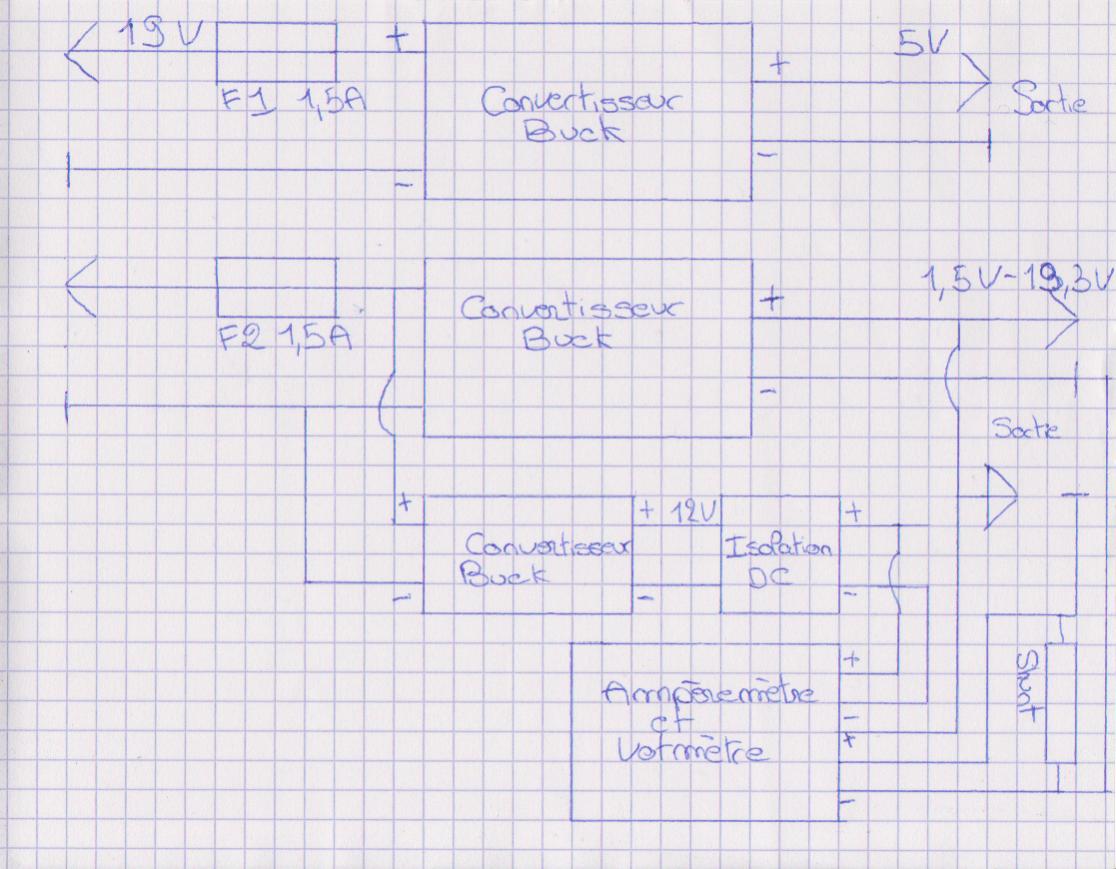 19V
+
F1 1,5A
-
Convertisseur
Buck
+
5V
-
Sortie
F2 1,5A
Convertisseur
Buck
+
-
1,5V-19,3V
Sortie
+
-
Convertisseur
Buck
+ 12V
-
Isolation
DC
+
-
Ampèremètre
et
Votmètre
+
-
+
-
Shunt